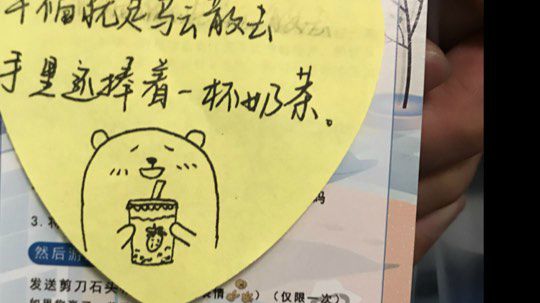 幸福就是乌云散去
手里还捧着一杯奶茶。
吗
3.
然后游
发送剪刀石头
表情
）（仅限一次）